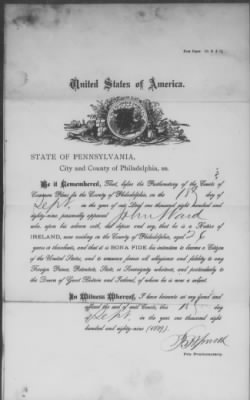 United States of America.
STATE OF PENNSYLVANIA,
City and County of Philadelphia, ss.
Be it Remembered, That, before the Prothonotary of the Courts of
Common Pleas for the County of Philadelphia, on the 18 day of
Sept. in the year of our Lord one thousand eight hundred and
eighty-nine, personally appeared John Ward
who, upon his solemn oath, did depose and say, that he is a Native of
IRELAND, now residing in the County of Philadelphia, aged 28
years or thereabouts, and that it is BONA FIDE his intention to become a Citizen
of the United States, and to renounce forever all allegiance and fidelity to any
Foreign Prince, Potentate, State, or Sovereignty whatever, and particularly to
the Queen of Great Britain and Ireland, of whom he is now a subject.
In Witness Whereof, I have hereunto set my hand and
affixed the seal of said Courts, this 18 day
of Sept. in the year one thousand eight
hundred and eighty-nine (1889).
Pro Prothonotary.